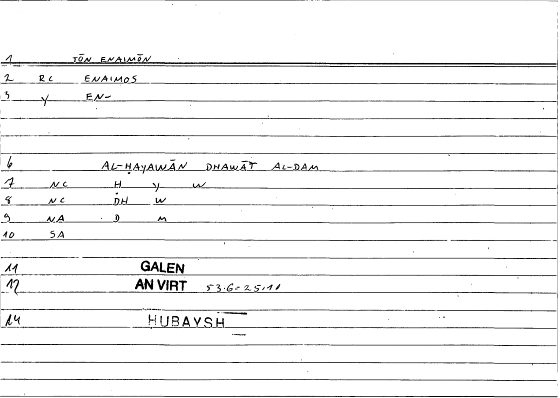 1 TŌN ENAIMŌN
2 RC ENAIMOS
3 Y EN-
6 AL-ḤAYAWĀN DHAWĀT AL-DAM
7 NC Ḥ Y W
8 NC DH W
9 NA D M
10 SA
11 GALEN
12 AN VIRT
14 HUBAYSH